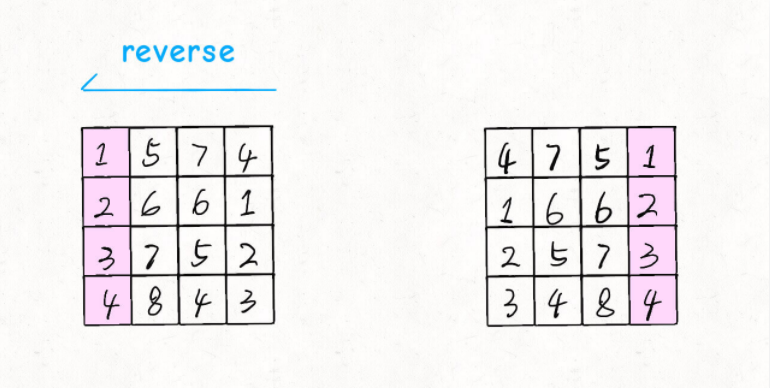 reverse
1 5 7 4
2 6 6 1
3 7 5 2
4 8 4 3
4 7 5 1
1 6 6 2
2 5 7 3
3 4 8 4